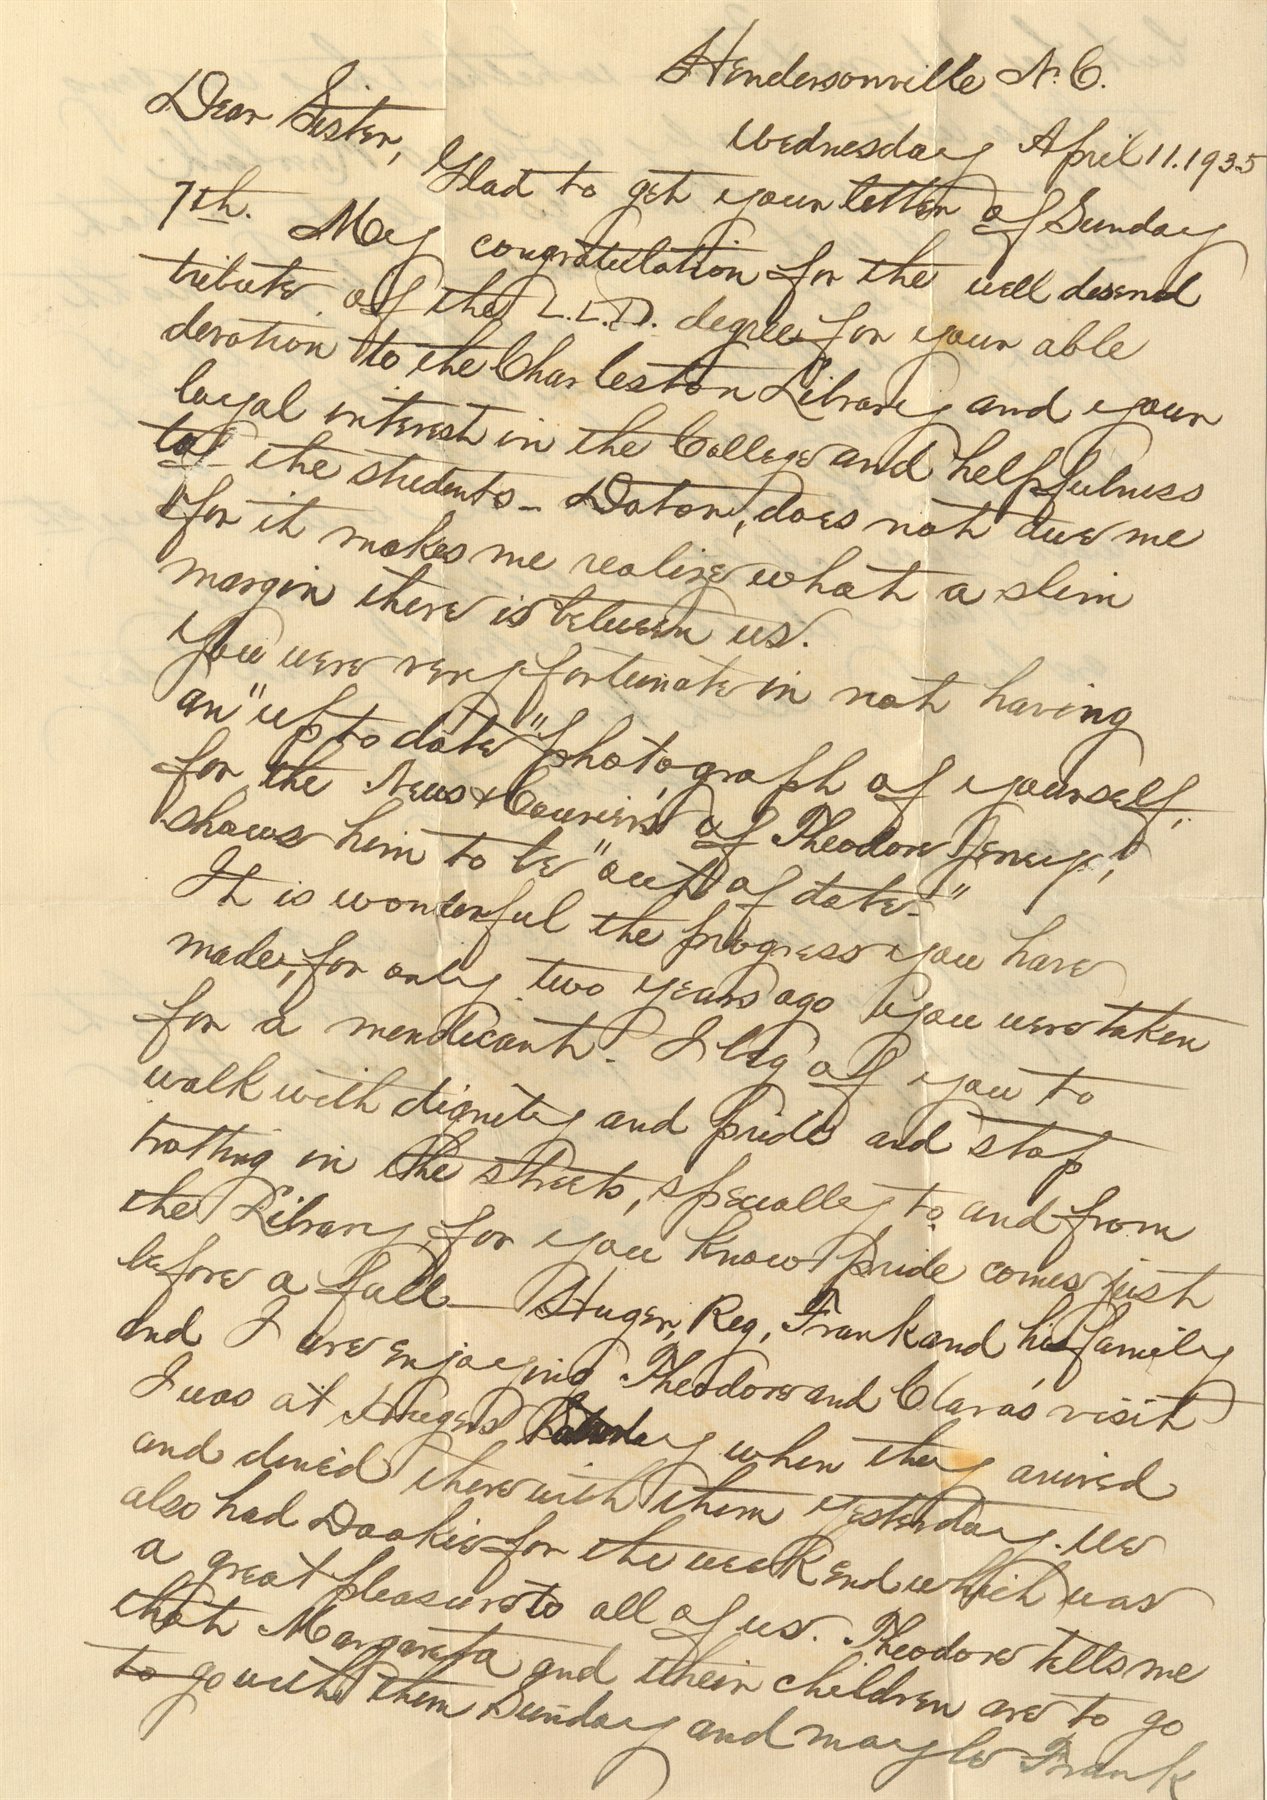 Hendersonville N.C.
Wednesday April 11. 1935
Dear Sister,
Glad to get your letter of Sunday
7th. My congratulation for the well deserved
tribute of the L.L.D. degree for your able
devotion to the Charleston Library and your
loyal interest in the College and helpfulness
to the students – does not awe me
for it makes me realize what a slim
margin there is between us.
You were very fortunate in not having
an "up to date" photograph of yourself,
for the News & Courier's of Theodore Jervey,
shows him to be "out of date."
It is wonderful the progress you have
made, for only two years ago you were taken
for a mendicant. I beg of you to
walk with dignity and pride and stop
trotting in the streets, specially to and from
the Library for you know pride comes just
before a fall – Huger, Reg, Frank and his family
and I are enjoying Theodore and Clara's visit
I was at Hugers when they arrived
and dined there with them yesterday. We
also had Dookie for the week end which was
a great pleasure to all of us. Theodore tells me
that Margareta and their children are to go
to go with them Sunday and maybe Frank